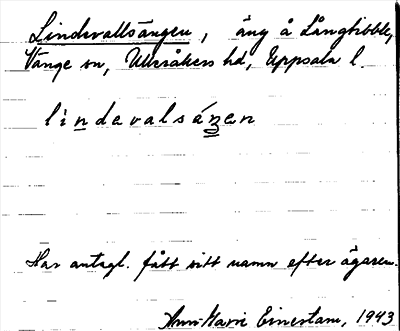 Lindevallsängen, äng å Långtibble,
Vänge sn, Ulleråkers hd, Uppsala l.
lindevalsáŋen
Har antagl. fått sitt namn efter ägaren.
Ann-Marie Einestam, 1943